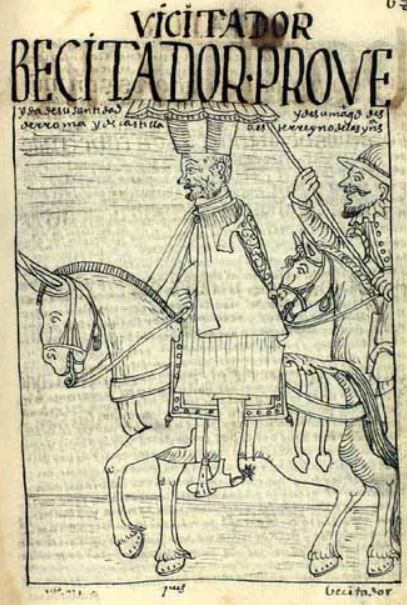 VICITADOR
BECITADOR·PROVE
yda de su santidad
de rroma y de castilla
y de su mag.d des
te rreyno delas yn.s
pues
becitador